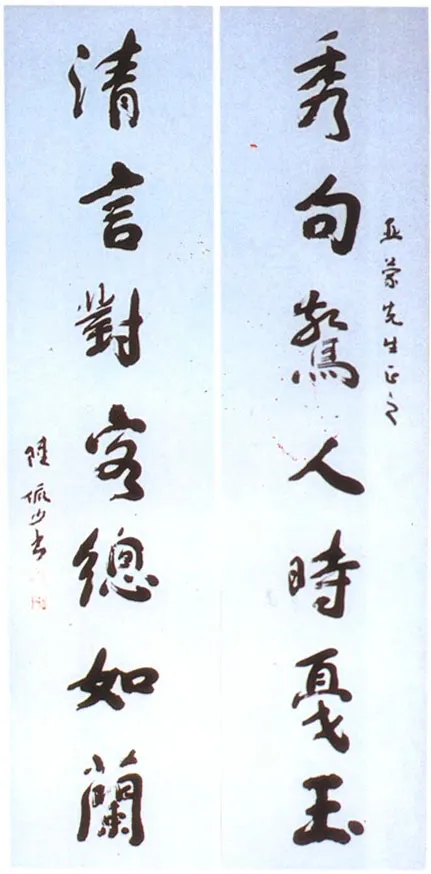 亚蒙先生正之
秀句驚人時戛玉
清言對客總如蘭
陸佩少書